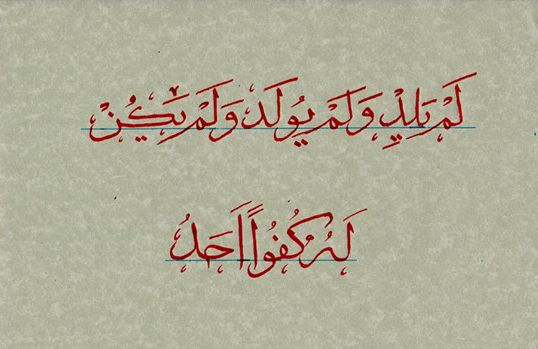 لَمْ يَلِدْ وَلَمْ يُولَدْ وَلَمْ يَكُنْ
لَهُ كُفُوًا أَحَدُ